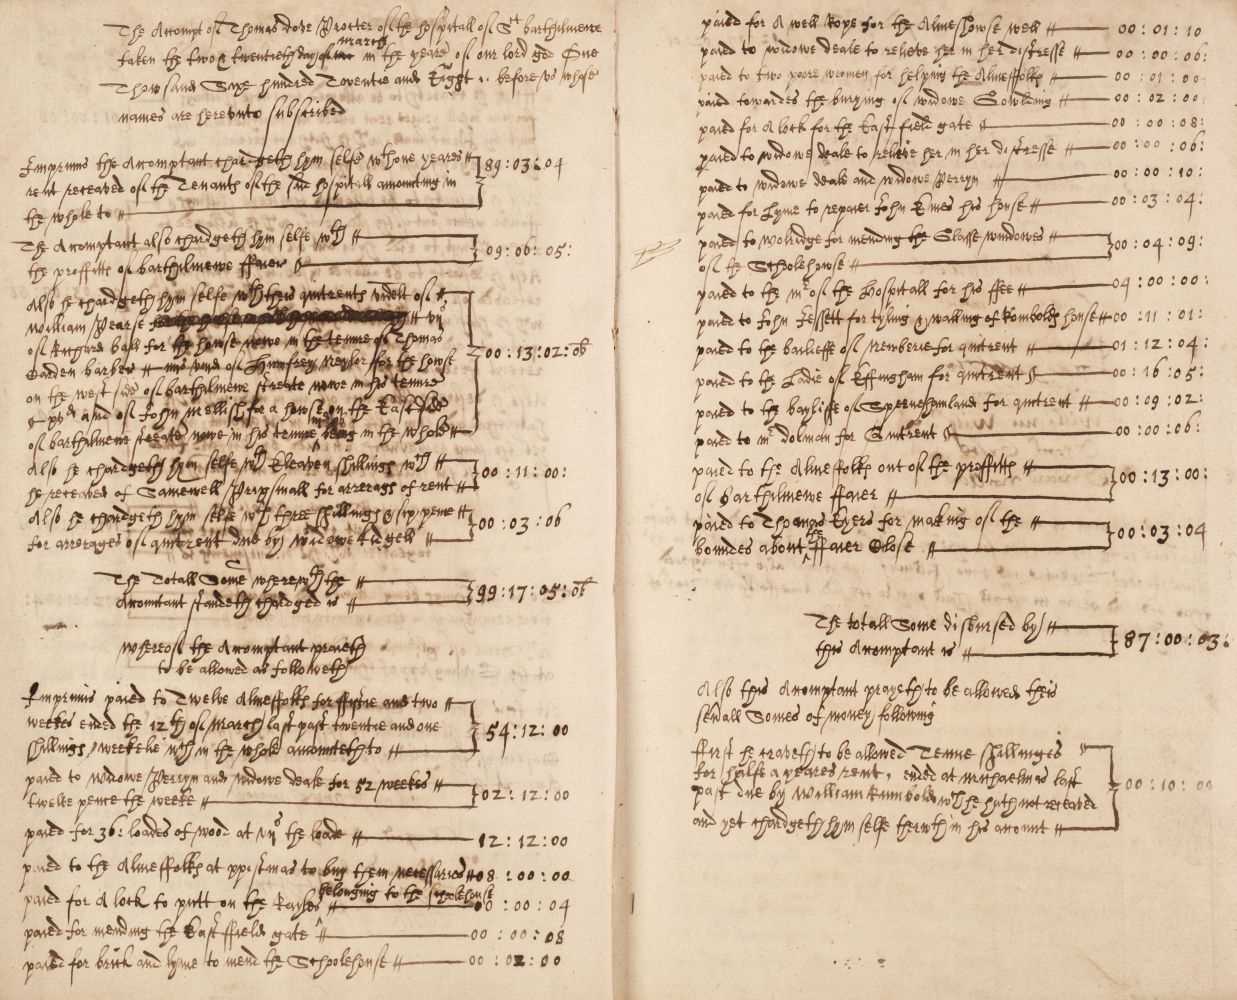 The Accompt of Thomas Dove Procter of the hospitall of St bartholmewe
taken the two & twentieth day of march in the yeare of our lord god One
Thowsand Sixe hundred Twentie and Eight before us whose
names are hereunto subscribed
Imprimis the Accomptant chardgeth hym selfe wth one yeares 89:03:04
rent receaved of the Tenants of the said hospitall amounting in
the whole to
The Accomptant also chardgeth hym selfe wth 09:06:05:
the proffitts of barthilmewe ffaier
Also he chardgeth hym selfe wth theis quitrents videlt of
William Pearse vjs
of Richard ball for his howse nowe in the tenure of Thomas 00:13:02:ob
Carden barber and of Humfrey Naylor for the howse
on the west side of barthilmewe streate nowe in his tenure
and of John Mellish for a howse on the East side
of barthilmewe streate nowe in his tenure being in the whole
Also he chardgeth hym selfe wth Eleaven shillings wch 00:11:00:
he receaved of Samewell for arrerags of rent
Also he chardgeth hym selfe wth three shillings & six pence 00:03:06
for arrerages of quitrent due by widowe
The Totall Some wherewth the 99:17:05:ob
Accomtant standeth chardged is
Whereof the Accomptant praieth
to be allowed as followeth
Imprimis paied to Twelve Almeffolks for ffiftie and two
weekes ended the 12th of March last past twentie and one 54:12:00
shillings weekelie wch in the whole amounteth to
paied to widowe Perryn and widowe deale for 52 weekes 02:12:00
twelve pence the weeke
paied for 36: loades of wood at vijs the loade 12:12:00
paied to the Almeffolks at xpistmas to buy them necessaries 08:00:00
belonging to the scholehouse
paied for A lock to putt on the 00:00:04
paied for mending the East ffield gate 00:00:08
paied for brick and lyme to mend the Schoolehouse 00:02:00
paied for A well Rope for the Almeshowse well 00:01:10
paied to widowe deale to releive her in her distresse 00:00:06:
paied to two poore women for helping the Almeffolks 00:01:00
paied towardes the burying of widowe Gowlding 00:02:00
paied for A lock for the East field gate 00:00:08:
paied to widowe deale to releive her in her distresse 00:00:06:
paied to widowe deale and widowe Perryn 00:00:10:
paied for Lyme to repaier John Eives his house 00:03:04:
paied to for mending the Glasse windowes 00:04:09:
of the Schoolehowse
paied to the mr of the Hospitall for his ffee 04:00:00:
paied to John Jessett for tyling & walling of Rombolds house 00:11:01:
paied to the bayliffe of Newberie for quitrent 01:12:04:
paied to the Ladie of Effingham for quitrent 00:16:05:
paied to the bayliffe of Speenehamland for quitrent 00:09:02:
paied to mr dolman for Quitrent 00:00:06:
paied to the Almeffolks out of the proffitts 00:13:00:
of Barthilmewe ffaier
paied to Thomas Eyers for making of the 00:03:04
boundes about the ffaier Close
The totall Some disbursed by 87:00:03:
this Accomptant is
Also this Accomptant prayeth to be allowed theis
sevall Somes of money following
ffirst he craveth to be allowed Tenne shillinges
for halfe a yeares rent, ended at michaelmas last
past due by William Rumbold wch he hath not receaved 00:10:00
and yet chardgeth hym selfe therwth in his accomt